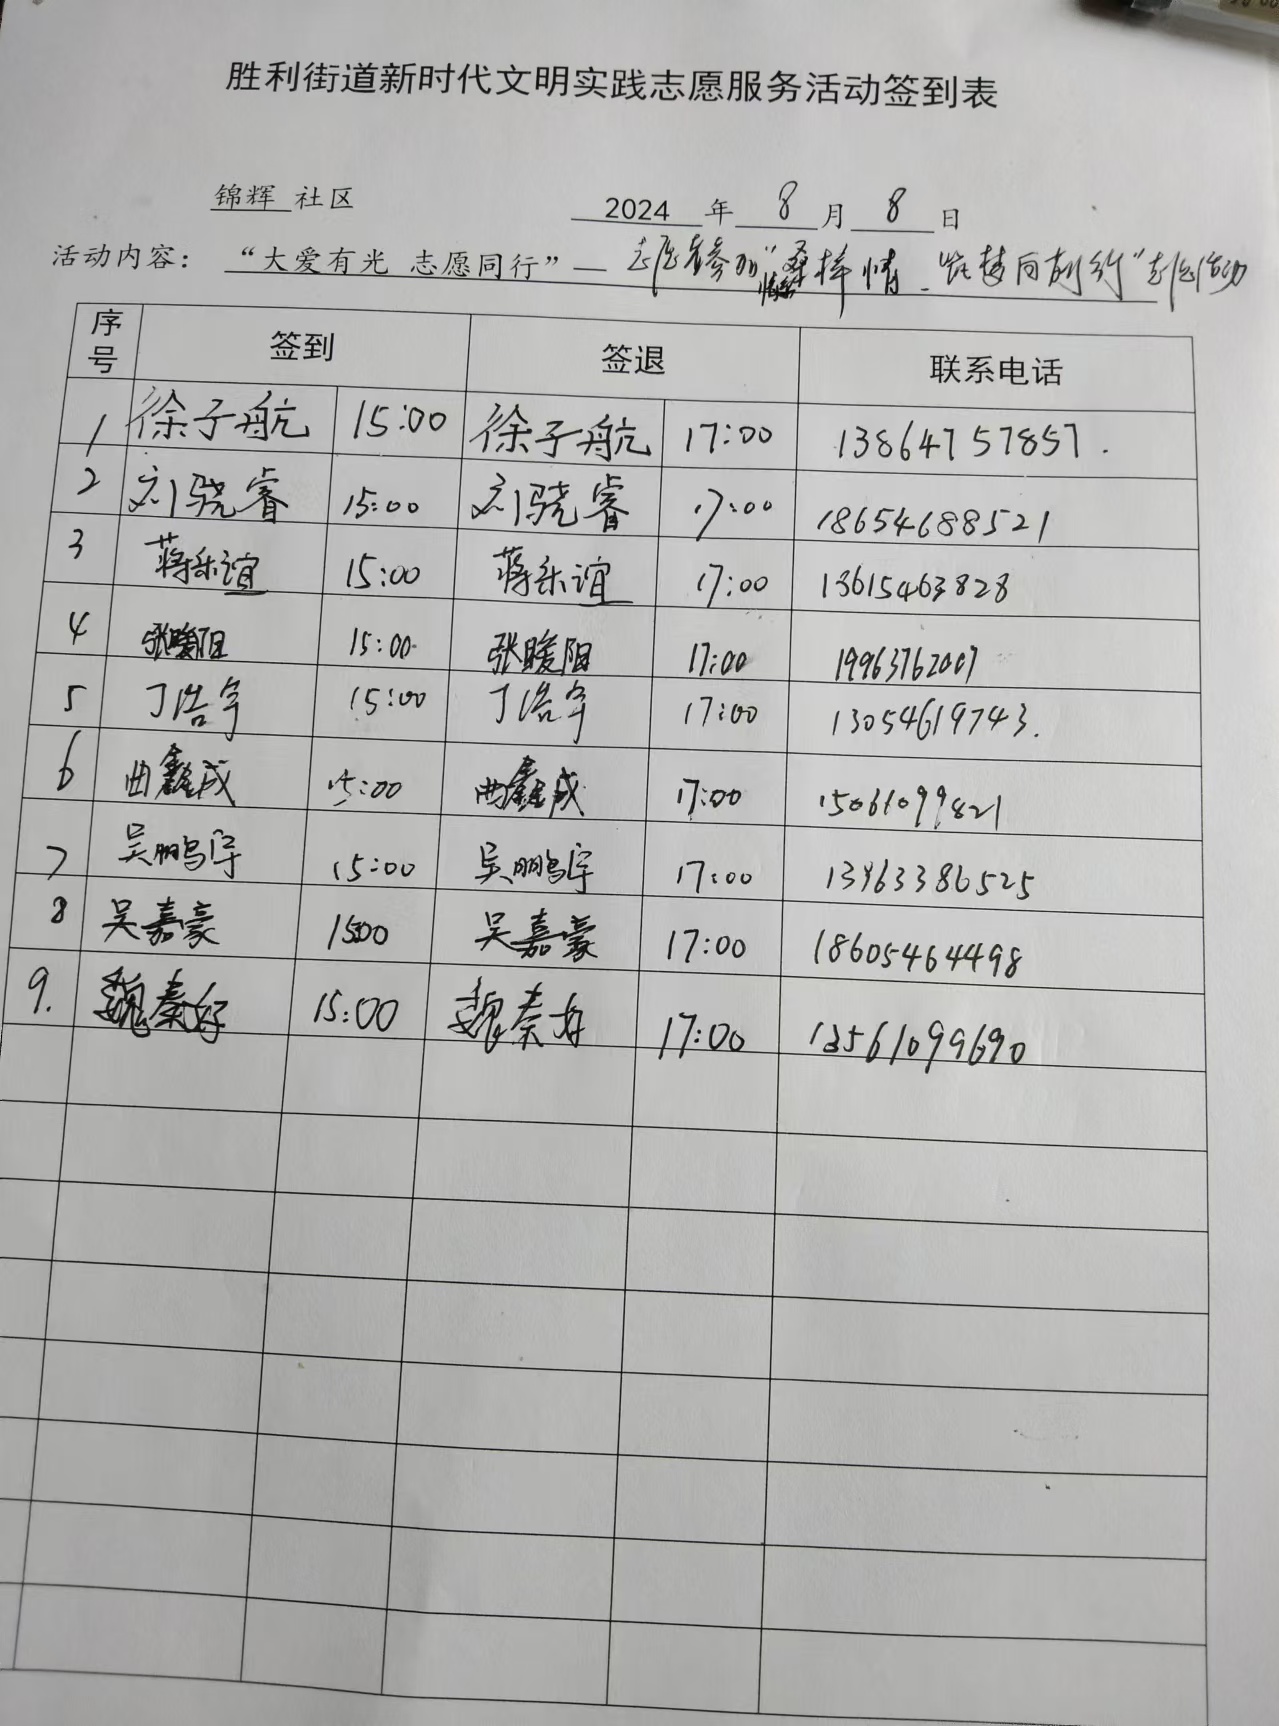 胜利街道新时代文明实践志愿服务活动签到表
锦辉 社区 2024 年 8 月 8 日
活动内容： “大爱有光 志愿同行”— 志愿者参加“桑梓情 向前行”志愿活动
序号 签到 签退 联系电话
1 徐子航 15:00 徐子航 17:00 13864757857.
2 刘骁睿 15:00 刘骁睿 17:00 18654688521
3 蒋乐谊 15:00 蒋乐谊 17:00 13615463828
4 张暖阳 15:00 张暖阳 17:00 19963762007
5 丁浩宇 15:00 丁浩宇 17:00 13054619743.
6 曲鑫成 15:00 曲鑫成 17:00 15061099821
7 吴鹏宇 15:00 吴鹏宇 17:00 13963386525
8 吴嘉豪 15:00 吴嘉豪 17:00 18605464498
9. 魏秦好 15:00 魏秦好 17:00 13561099690